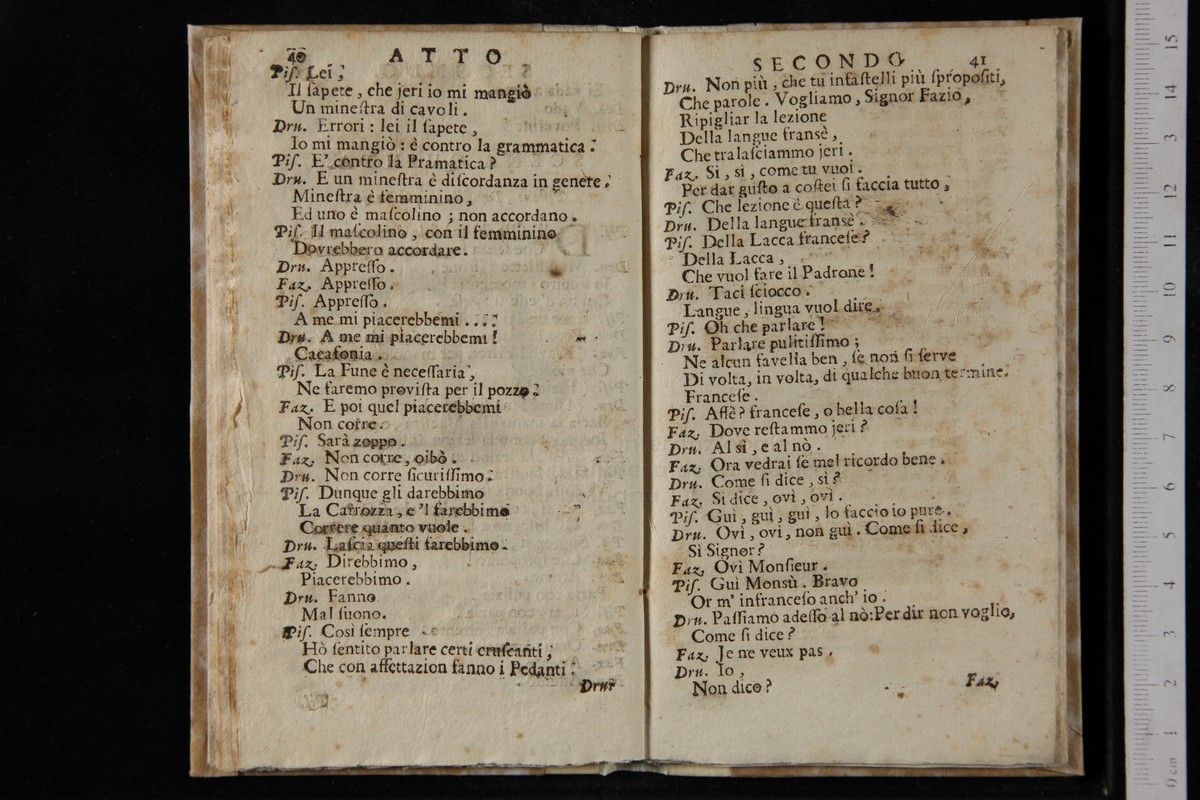 40 ATTO
Piſ. Lei;
Il ſapete, che jeri io mi mangiò
Un mineſtra di cavoli.
Dru. Errori: lei il ſapete,
Io mi mangiò: è contro la grammatica.
Piſ. E' contro la Pramatica?
Dru. E un mineſtra è diſcordanza in genere.
Mineſtra è femminino,
Ed uno è maſcolino; non accordano.
Piſ. Il maſcolino, con il femminino
Dovrebbero accordare.
Dru. Appreſſo.
Faz. Appreſſo.
Piſ. Appreſſo.
A me mi piacerebbemi....
Dru. A me mi piacerebbemi!
Cacafonia.
Piſ. La Fune è neceſſaria,
Ne faremo proviſta per il pozzo.
Faz. E poi quel piacerebbemi
Non corre.
Piſ. Sarà zoppo.
Faz. Non corre, oibò.
Dru. Non corre ſicuriſſimo.
Piſ. Dunque gli darebbimo
La Carrozza, e 'l farebbimo
Correre quanto vuole.
Dru. Laſcia queſti farebbimo.
Faz. Direbbimo,
Piacerebbimo.
Dru. Fanno
Mal ſuono.
Piſ. Così ſempre
Hò ſentito parlare certi cruſcanti,
Che con affettazion fanno i Pedanti.
Dru.
SECONDO. 41
Dru. Non più, che tu infaſtelli più ſpropoſiti,
Che parole. Vogliamo, Signor Fazio,
Ripigliar la lezione
Della langue franſè,
Che tralaſciammo jeri.
Faz. Sì, sì, come tu vuoi.
Per dar guſto a coſtei ſi faccia tutto,
Piſ. Che lezione è queſta?
Dru. Della langue franſè.
Piſ. Della Lacca franceſe?
Della Lacca,
Che vuol fare il Padrone!
Dru. Taci ſciocco.
Langue, lingua vuol dire.
Piſ. Oh che parlare!
Dru. Parlare pulitiſſimo;
Ne alcun favella ben, ſe non ſi ſerve
Di volta, in volta, di qualche buon termine.
Franceſe.
Piſ. Affè? franceſe, o bella coſa!
Faz. Dove reſtammo jeri?
Dru. Al sì, e al nò.
Faz. Ora vedrai ſe mel ricordo bene.
Dru. Come ſi dice, sì?
Faz. Si dice, ovì, ovì.
Piſ. Guì, guì, guì, lo faccio io pure.
Dru. Ovì, ovì, non guì. Come ſi dice,
Sì Signor?
Faz. Ovì Monſieur.
Piſ. Guì Monsù. Bravo
Or m' infranceſo anch' io.
Dru. Paſſiamo adeſſo al nò: Per dir non voglio,
Come ſi dice?
Faz. Je ne veux pas.
Dru. Io,
Non dico?
Faz.